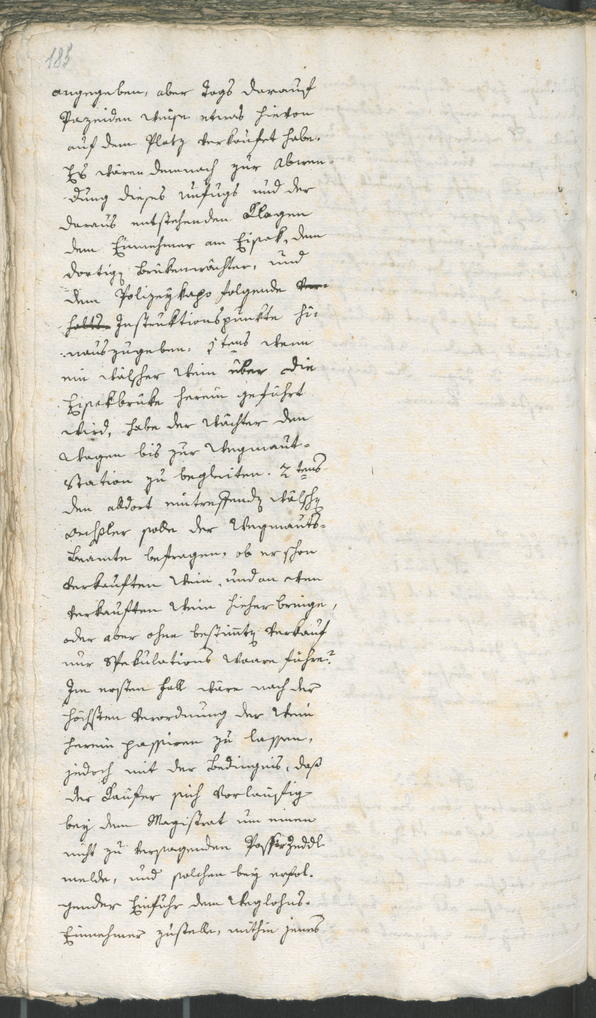 185
angegeben, aber tags darauf
Pazeiden weise etwas hievon
auf dem Platz verkaufet habe.
Es wären demnach zur Abwen-
dung dieses Unfugs und der
daraus entstehenden Klagen
dem Einnehmer am Eisak, dem
dortig. Brükenwächter, und
dem Polizeykapo folgende Ver-
halts Instruktionspunkte hi-
nauszugeben. 1tens wenn
ein wälscher Wein über die
Eisakbrüke herein geführt
wird, habe der Wächter den
Wagen bis zur Wegmaut-
Station zu begleiten. 2tens
den alldort eintreffendn wälschn
der Wegmauts-
Beamte befragen, ob er schon
verkauften Wein, und an wen
verkauften Wein hieher bringe,
oder aber ohne bestimtn Verkauf
nur Spekulations Waare führe?
Im ersten Fall wäre nach der
höchsten Verordnung der Wein
herein passiren zu lassen,
jedoch mit der Bedingnis, daß
der Kaufer sich vorläufig
bey dem Magistrat um einen
nicht zu versagenden Passirzeddl
melde, und solchen bey erfol-
gender Einfuhr dem Weglohns-
Einnehmer zustelle, mithin jenes